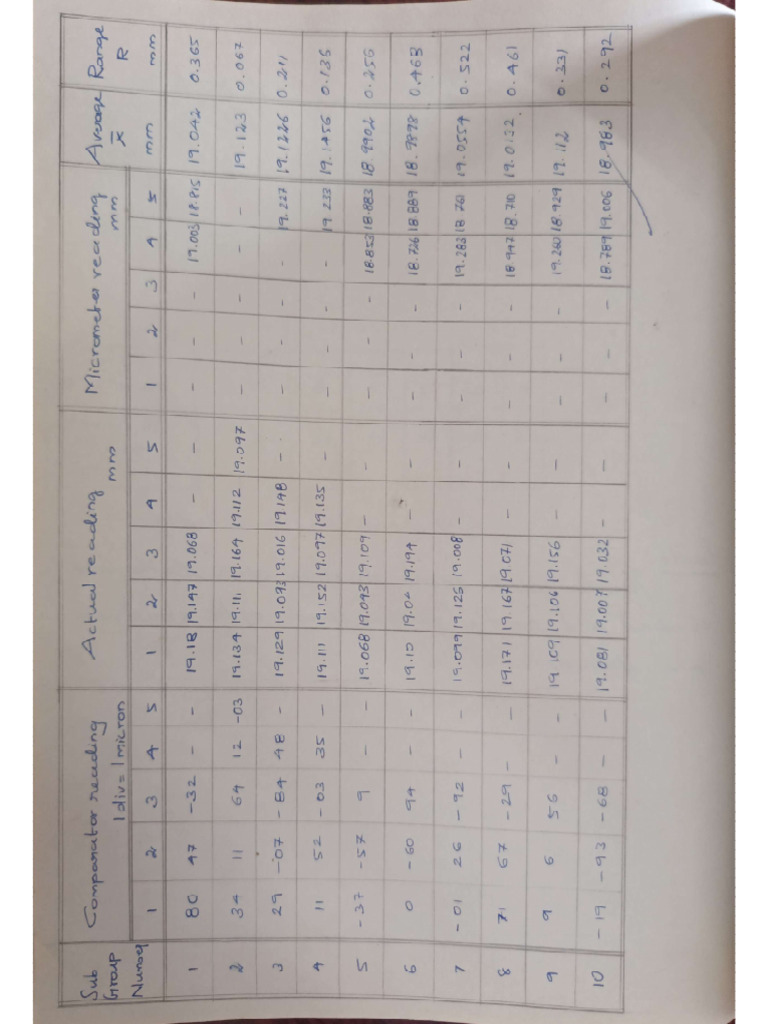 Sub Group Number | Comparator reading 1 div = 1 micron | Actual reading mm | Micrometer reading mm | Average x̄ mm | Range R mm
1 2 3 4 5 | 1 2 3 4 5 | 1 2 3 4 5
1 | 80 | 47 | -32 | - | - | 19.18 | 19.147 | 19.068 | - | - | - | - | - | 19.003 | 18.815 | 19.042 | 0.365
2 | 34 | 11 | 64 | 12 | -03 | 19.134 | 19.111 | 19.164 | 19.112 | 19.097 | - | - | - | - | - | 19.123 | 0.067
3 | 29 | -07 | -84 | 48 | - | 19.129 | 19.093 | 19.016 | 19.148 | - | - | - | - | - | 19.227 | 19.1226 | 0.211
4 | 11 | 52 | -03 | 35 | - | 19.111 | 19.152 | 19.097 | 19.135 | - | - | - | - | - | 19.233 | 19.1456 | 0.136
5 | -37 | -57 | 9 | - | - | 19.068 | 19.043 | 19.109 | - | - | - | - | - | 18.853 | 18.883 | 18.9902 | 0.256
6 | 0 | -60 | 94 | - | - | 19.10 | 19.04 | 19.194 | - | - | - | - | - | 18.726 | 18.889 | 18.9898 | 0.468
7 | -01 | 26 | -92 | - | - | 19.099 | 19.126 | 19.008 | - | - | - | - | - | 19.283 | 18.761 | 19.0554 | 0.522
8 | 71 | 67 | -29 | - | - | 19.171 | 19.167 | 19.071 | - | - | - | - | - | 18.947 | 18.710 | 19.0132 | 0.461
9 | 9 | 6 | 56 | - | - | 19.109 | 19.106 | 19.156 | - | - | - | - | - | 19.260 | 18.929 | 19.112 | 0.331
10 | -19 | -93 | -68 | - | - | 19.081 | 19.007 | 19.032 | - | - | - | - | - | 18.789 | 19.006 | 18.983 | 0.292